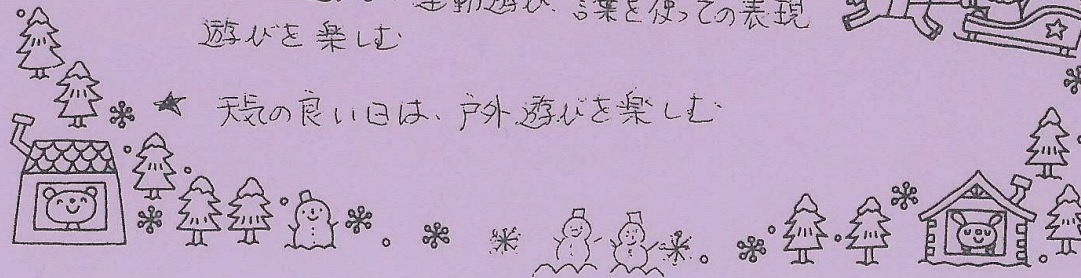 運動遊び、言葉を使っての表現
遊びを楽しむ
★ 天気の良い日は、戸外遊びを楽しむ